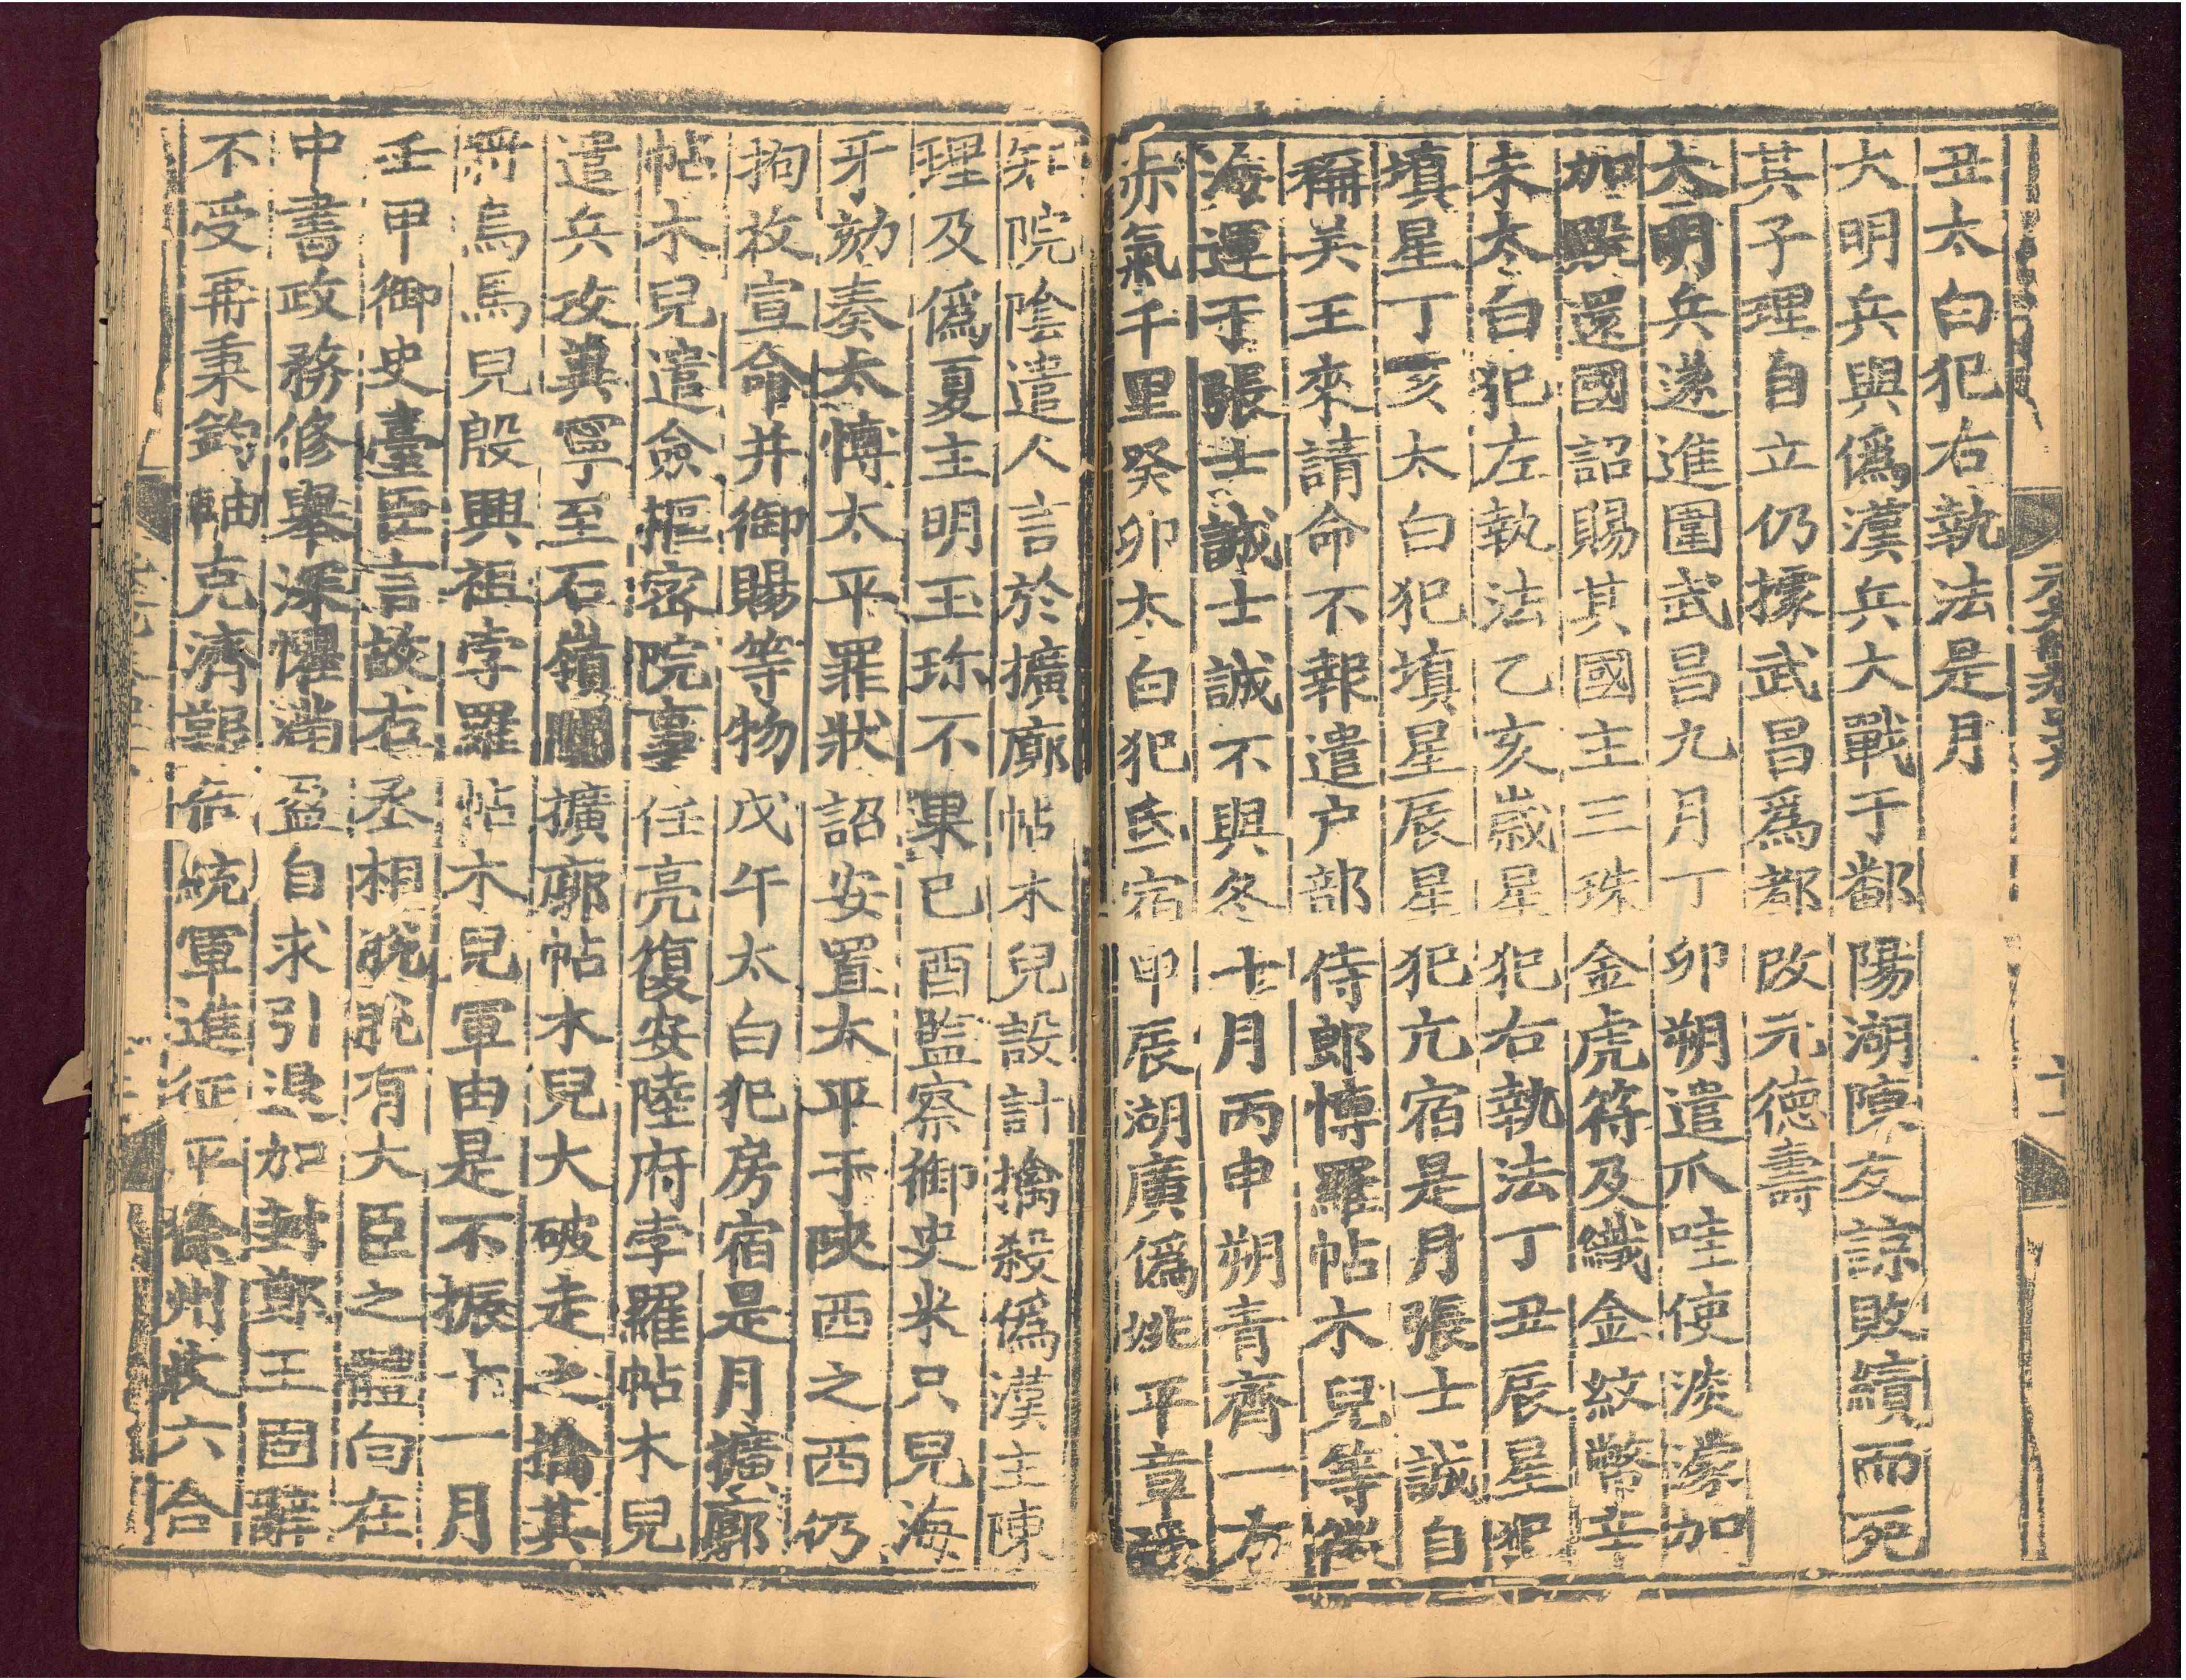 丑太白犯右執法是月
大明兵與僞漢兵大戰于鄱陽湖陳友諒敗績而死
其子理自立仍據武昌爲都改元德壽
大明兵遂進圍武昌九月丁卯朔遣爪哇使淡濛加
加殿還國詔賜其國主三珠金虎符及織金紋幣辛
未太白犯左執法乙亥歲星犯右執法丁丑辰星犯
填星丁亥太白犯填星辰星犯亢宿是月張士誠自
稱吳王來請命不報遣户部侍郎博羅帖木兒等徵
海運于張士誠士誠不與冬十月丙申朔青齊一方
赤氣千里癸卯太白犯氐宿甲辰湖廣僞姚平章
知院陰遣人言於擴廓帖木兒設計擒殺僞漢主陳
理及僞夏主明玉珍不果己酉監察御史米只兒海
牙劾奏太傅太平罪狀詔安置太平于陝西之西仍
拘收宣命并御賜等物戊午太白犯房宿是月擴廓
帖木兒遣僉樞密院事任亮復安陸府孛羅帖木兒
遣兵攻冀寧至石嶺關擴廓帖木兒大破走之擒其
將烏馬兒殷興祖孛羅帖木兒軍由是不振十一月
壬申御史臺臣言故右丞相脫脫有大臣之體向在
中書政務修舉深懼滿盈自求引退加封鄭王固辭
不受再秉鈞軸克濟艱危統軍進征平徐州收六合